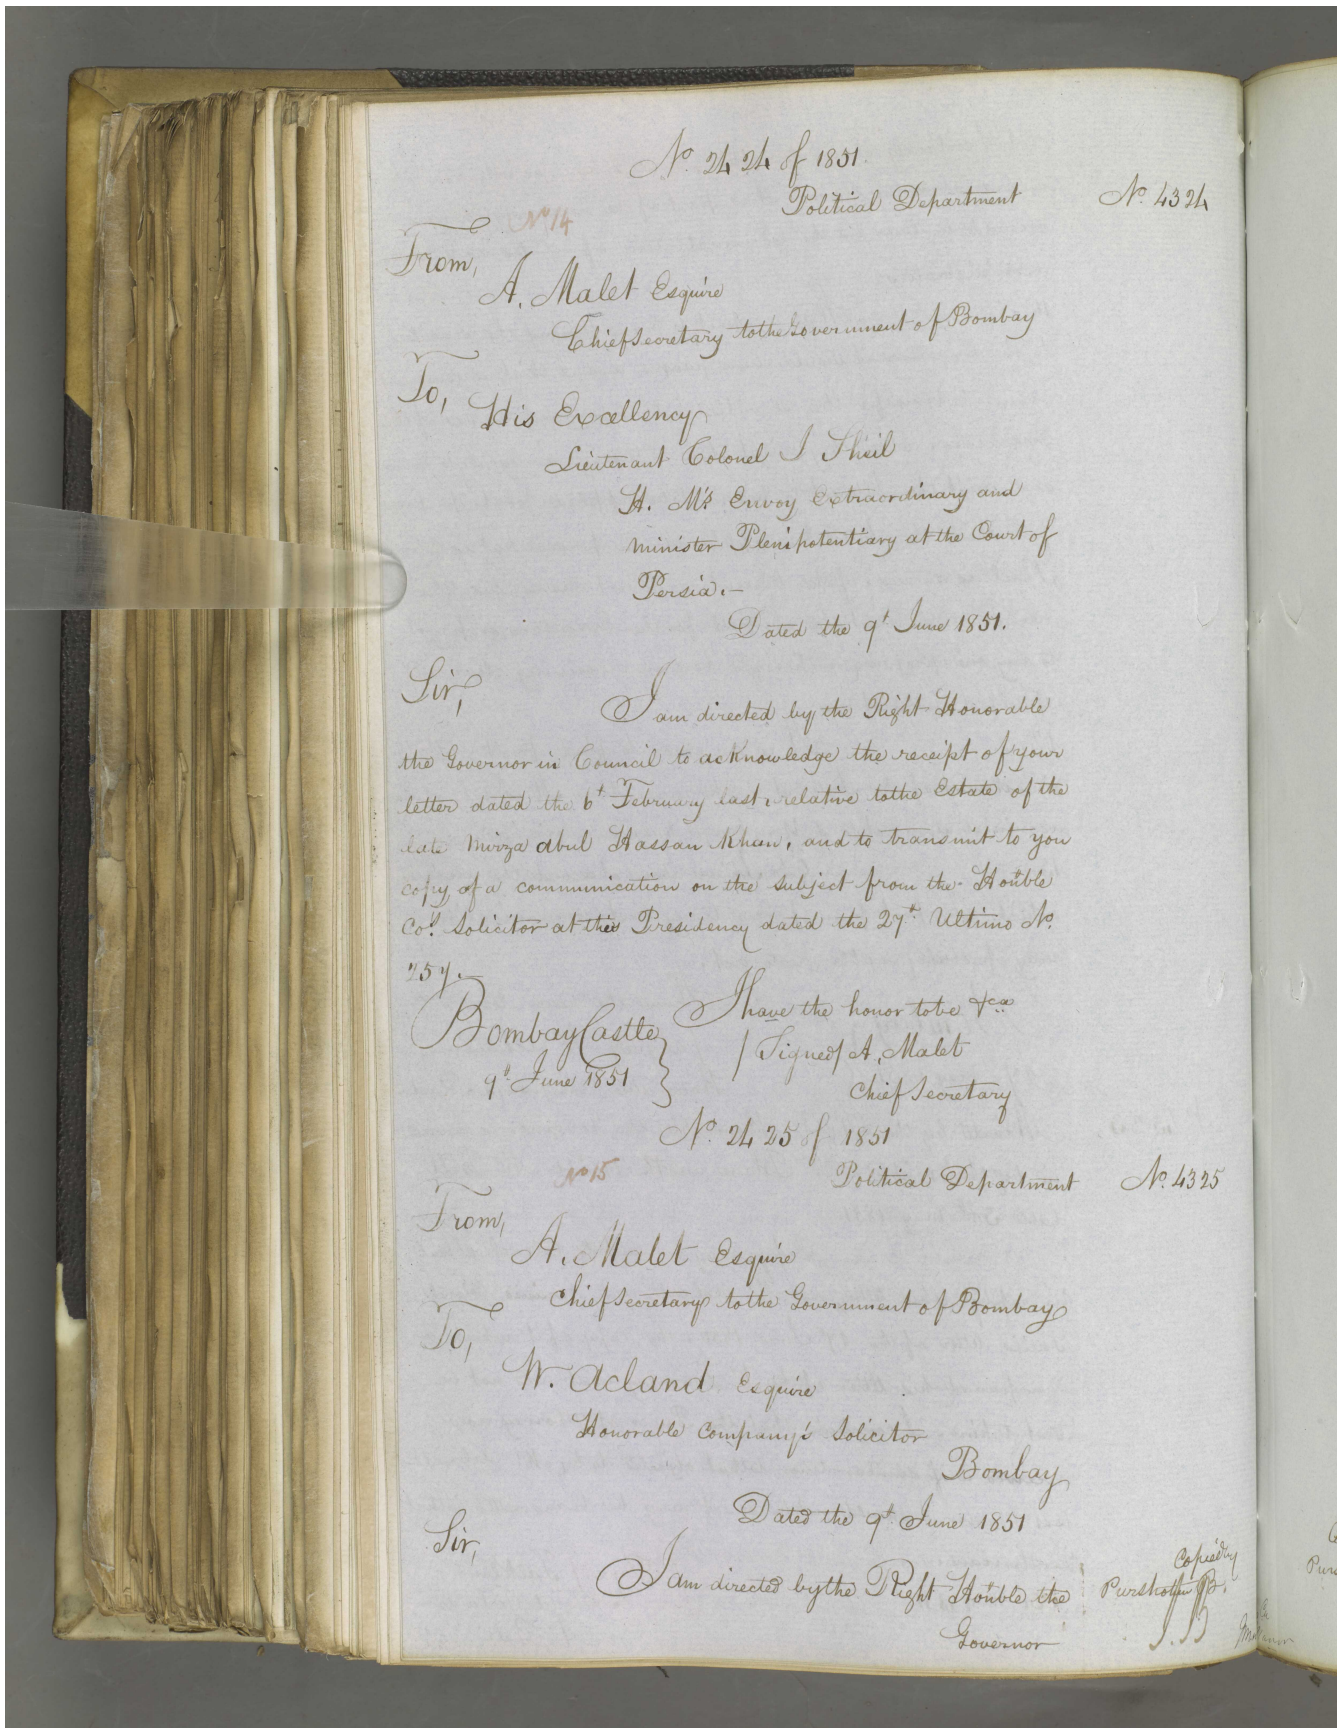 No. 2424 of 1851.
Political Department No. 4324
No 14
From,
A. Malet Esquire
Chief Secretary to the Government of Bombay
To,
His Excellency
Lieutenant Colonel J Sheil
H. M's Envoy Extraordinary and
Minister Plenipotentiary at the Court of
Persia.-
Dated the 9th June 1851.
Sir,
I am directed by the Right Honorable
the Governor in Council to acknowledge the receipt of your
letter dated the 6th February last, relative to the Estate of the
late Mirza Abul Hassan Khan, and to transmit to you
copy of a communication on the subject from the Honble
Co's Solicitor at this Presidency dated the 27th Ultimo No.
257.
I have the honor to be &ca
Bombay Castle
/Signed/ A. Malet
9th June 1851
Chief Secretary
No. 2425 of 1851
Political Department No. 4325
No 15
From,
A. Malet Esquire
Chief Secretary to the Government of Bombay
To,
W. Acland Esquire
Honorable Company's Solicitor
Bombay
Dated the 9th June 1851
Sir,
Copied by
I am directed by the Right Honble the
Governor